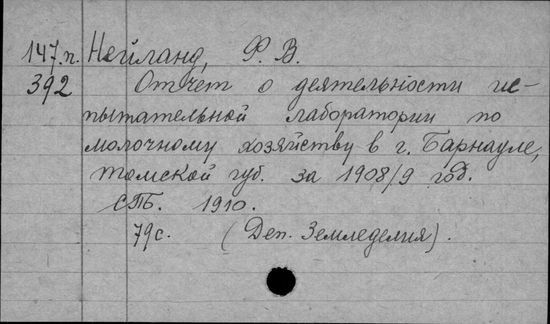 147.п. Нейланд, Ф. В.
392 Отчет о деятельности ис-
пытательной лаборатории по
молочному хозяйству в г. Барнауле,
томской губ. за 1908/9 год.
СПБ. 1910.
79с. (Деп. Земледелия).